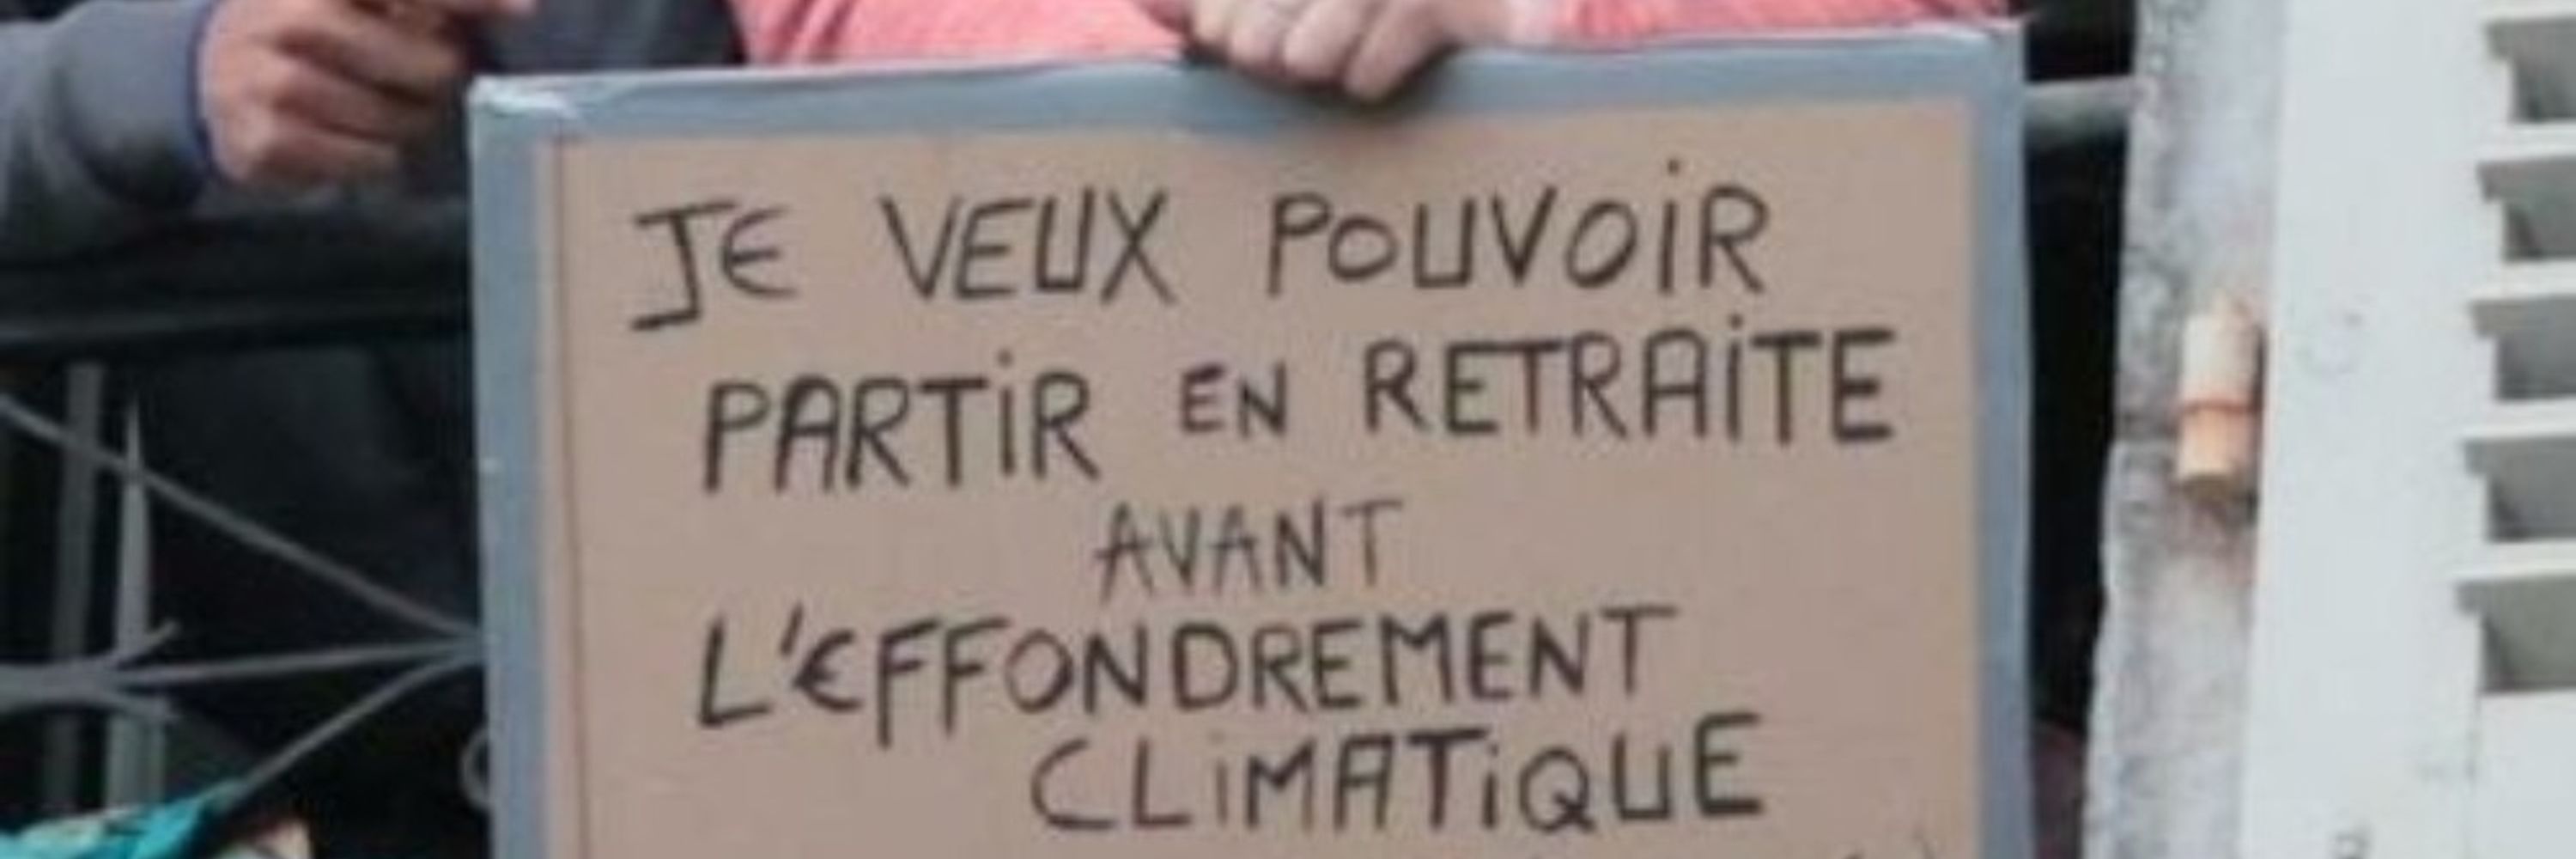 JE VEUX POUVOIR
PARTIR EN RETRAITE
AVANT
L'EFFONDREMENT
CLIMATIQUE